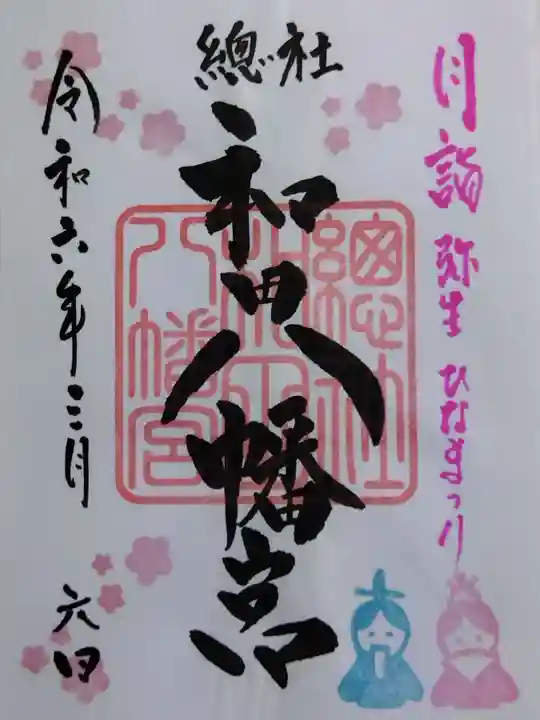 月詣 弥生 ひなまつり
總社
和田八幡宮
總社
和田
八幡宮
令和六年三月
六日